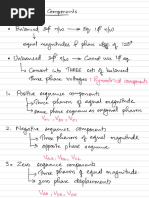 Components
• Balanced 3ϕ n/w → Eq. 1ϕ n/w
equal magnitudes & phase diff of 120°
• Unbalanced 3ϕ n/w → Cannot use 1ϕ eq.
→ Convert into THREE sets of balanced
three phase voltages | Symmetrical components
1. Positive sequence components
→ Three phasors of equal magnitude
→ phase sequence
2. Negative sequence components
→ Three phasors of equal magnitude
→ opposite phase sequence
3. Zero sequence components
→ three phasors of equal magnitude
→ zero phase displacement